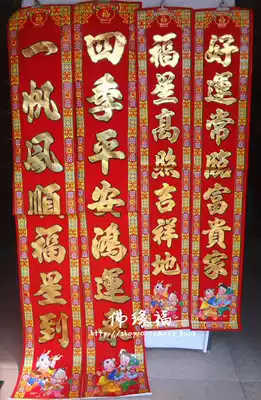 好運常臨富貴家
福星高照吉祥地
四季平安鴻運
一帆風順福星到
佛缘福